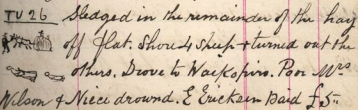 TU 26 Sledged in the remainder of the hay
off flat. Shore 4 sheep & turned out the
others. Drove to Waikopiro. Poor Mrs
Wilson & Niece drownd. E Ericksen paid £5-